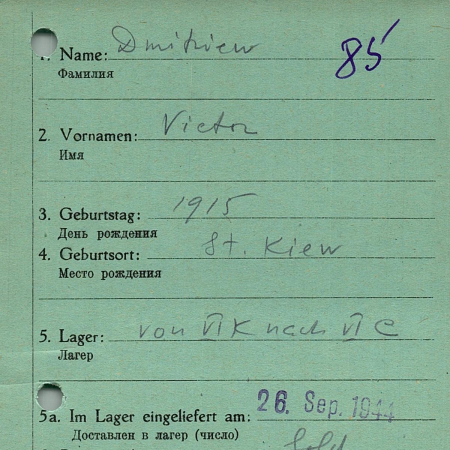 1. Name: Dmitriew
85
Фамилия
2. Vornamen: Victor
Имя
3. Geburtstag: 1915
День рождения
4. Geburtsort: St. Kiew
Место рождения
5. Lager: von VI K nach VI C
Лагерь
5a. Im Lager eingeliefert am: 26. Sep. 1944
Доставлен в лагер (число)
Sold